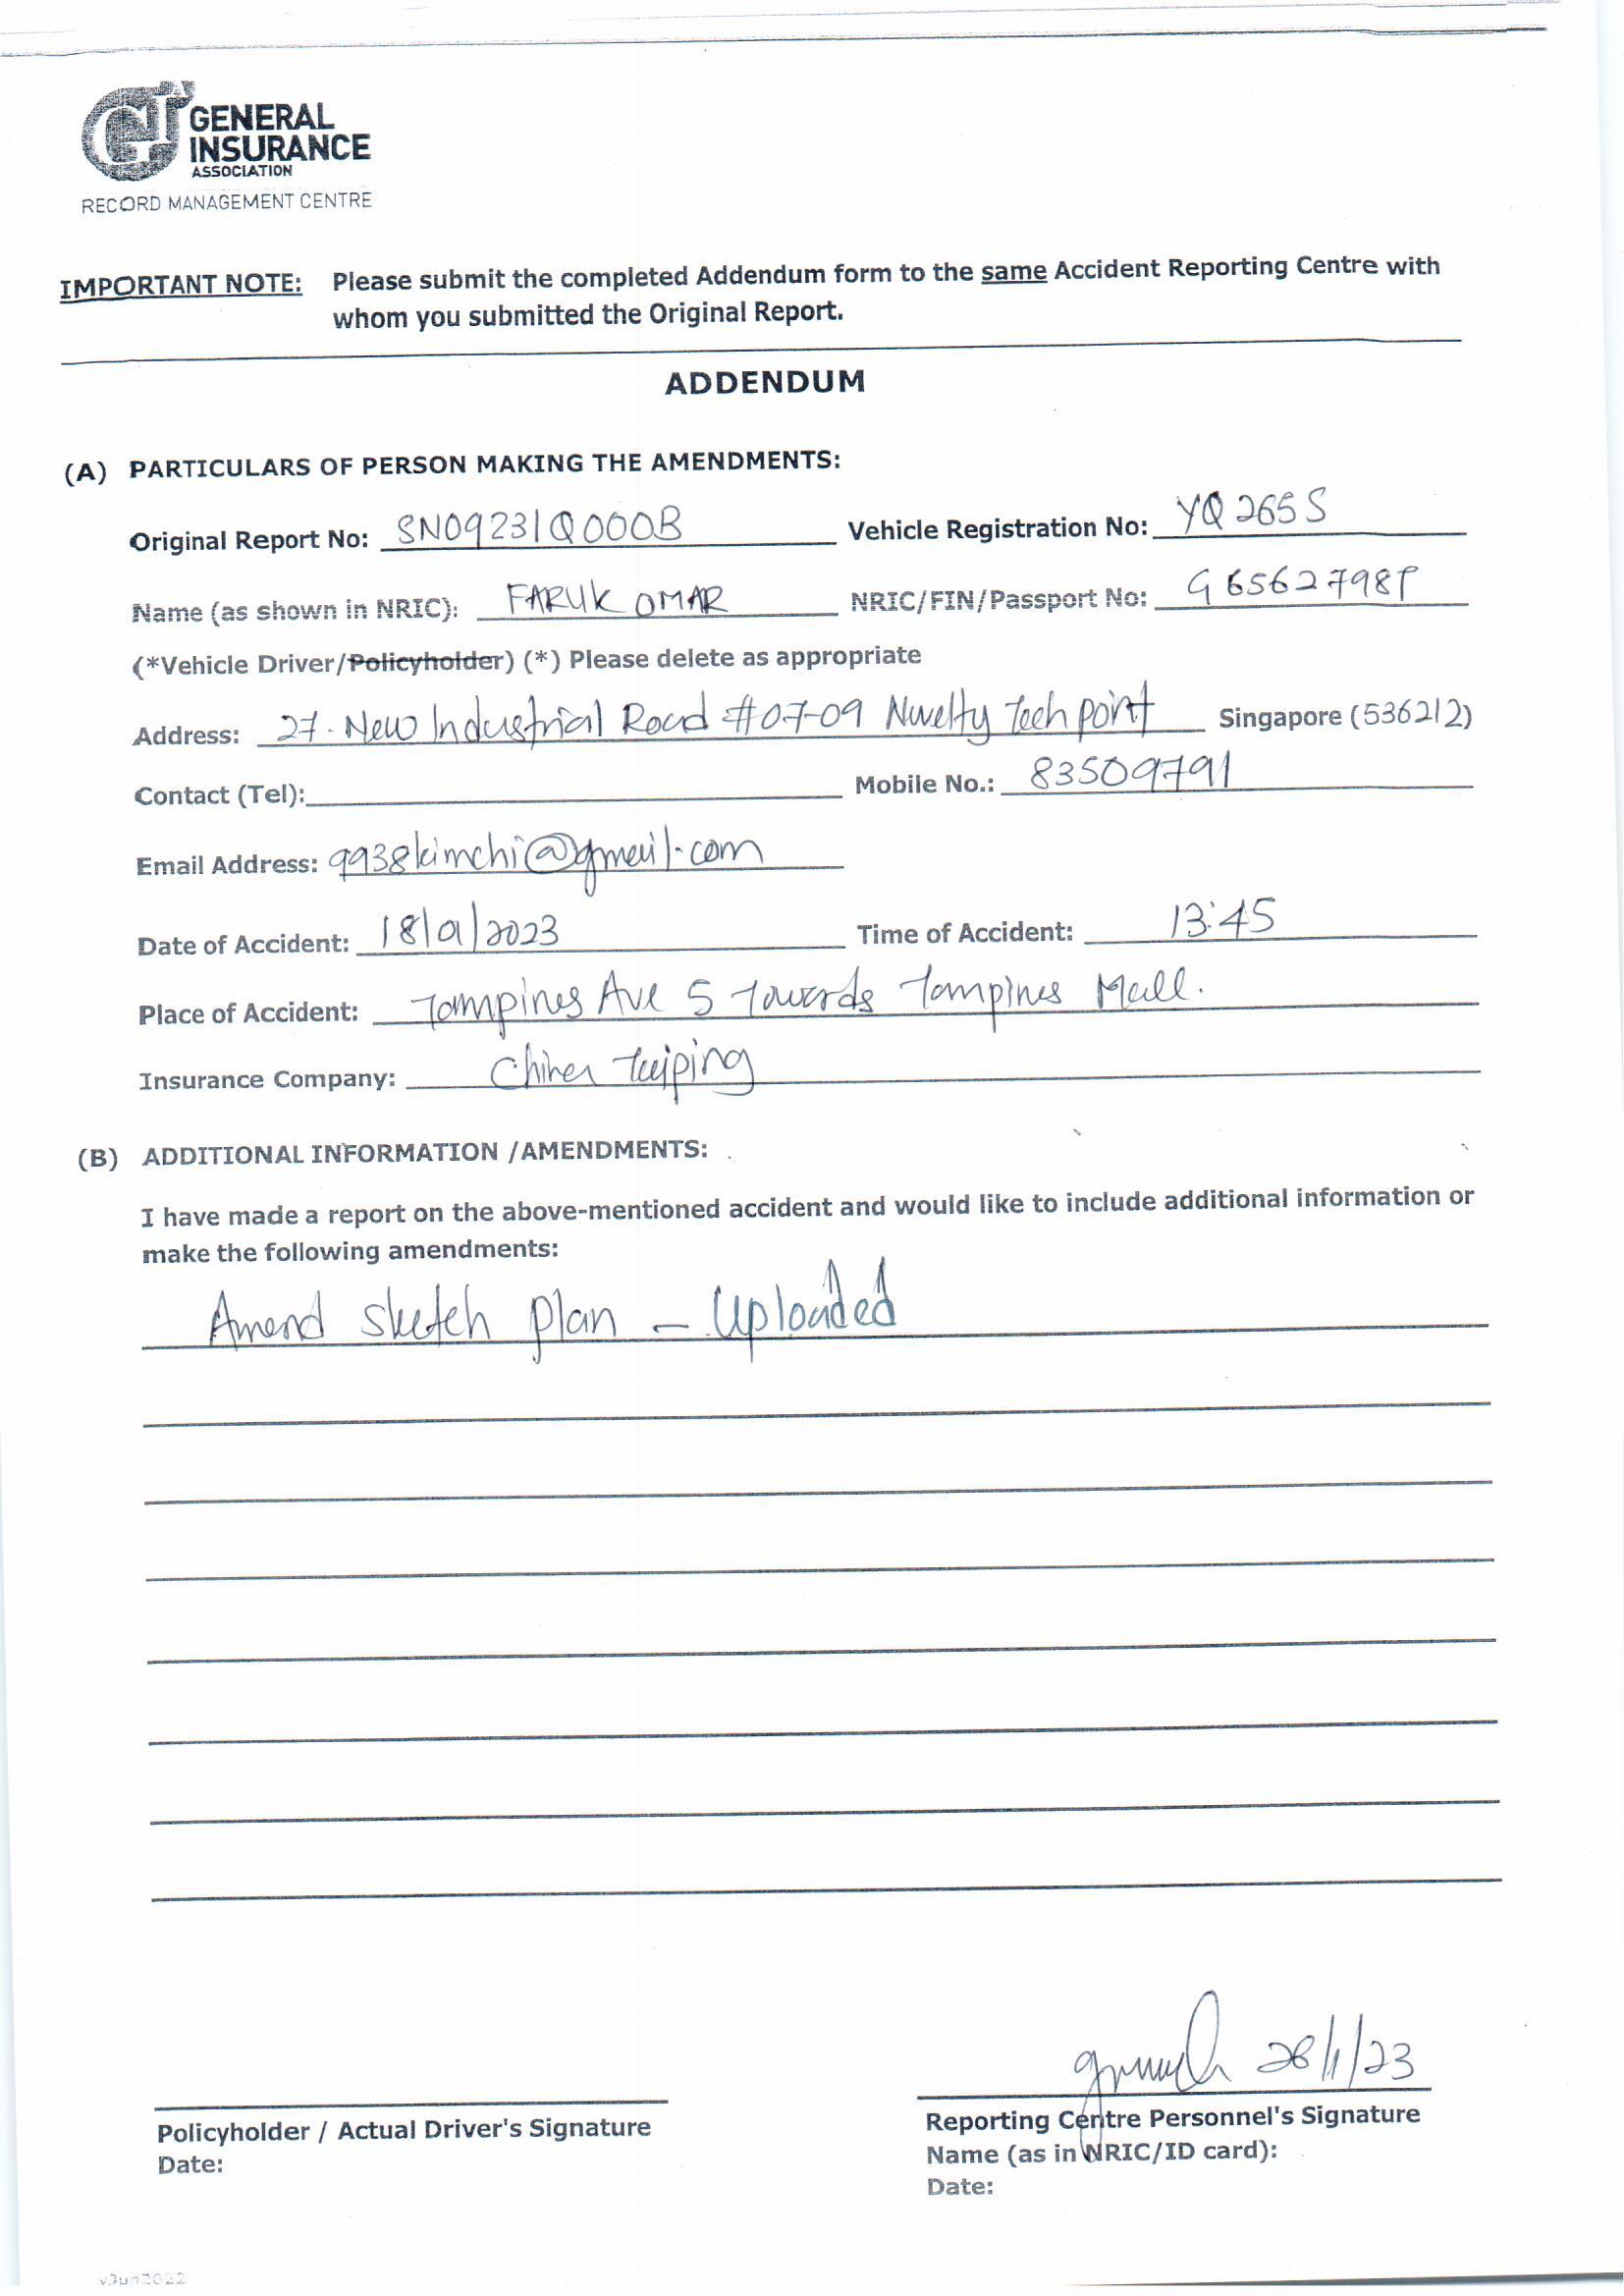 GIA GENERAL
INSURANCE
ASSOCIATION
RECORD MANAGEMENT CENTRE
IMPORTANT NOTE: Please submit the completed Addendum form to the same Accident Reporting Centre with
whom you submitted the Original Report.
ADDENDUM
(A) PARTICULARS OF PERSON MAKING THE AMENDMENTS:
Original Report No: SN09231Q000B Vehicle Registration No: YQ265S
Name (as shown in NRIC): FARUK OMAR NRIC/FIN/Passport No: G6562798P
(*Vehicle Driver/Policyholder) (*) Please delete as appropriate
Address: 27 New Industrial Road #07-09 Nuvelty Tech point Singapore (536212)
Contact (Tel): Mobile No.: 83509791
Email Address: 9938kimchi@gmail.com
Date of Accident: 18/01/2023 Time of Accident: 13:45
Place of Accident: Tampines Ave 5 Towards Tampines Mall.
Insurance Company: China Taiping
(B) ADDITIONAL INFORMATION /AMENDMENTS:
I have made a report on the above-mentioned accident and would like to include additional information or
make the following amendments:
Amend sketch plan - Uploaded
28/1/23
Policyholder / Actual Driver's Signature Reporting Centre Personnel's Signature
Date: Name (as in NRIC/ID card):
Date:
v3un2022